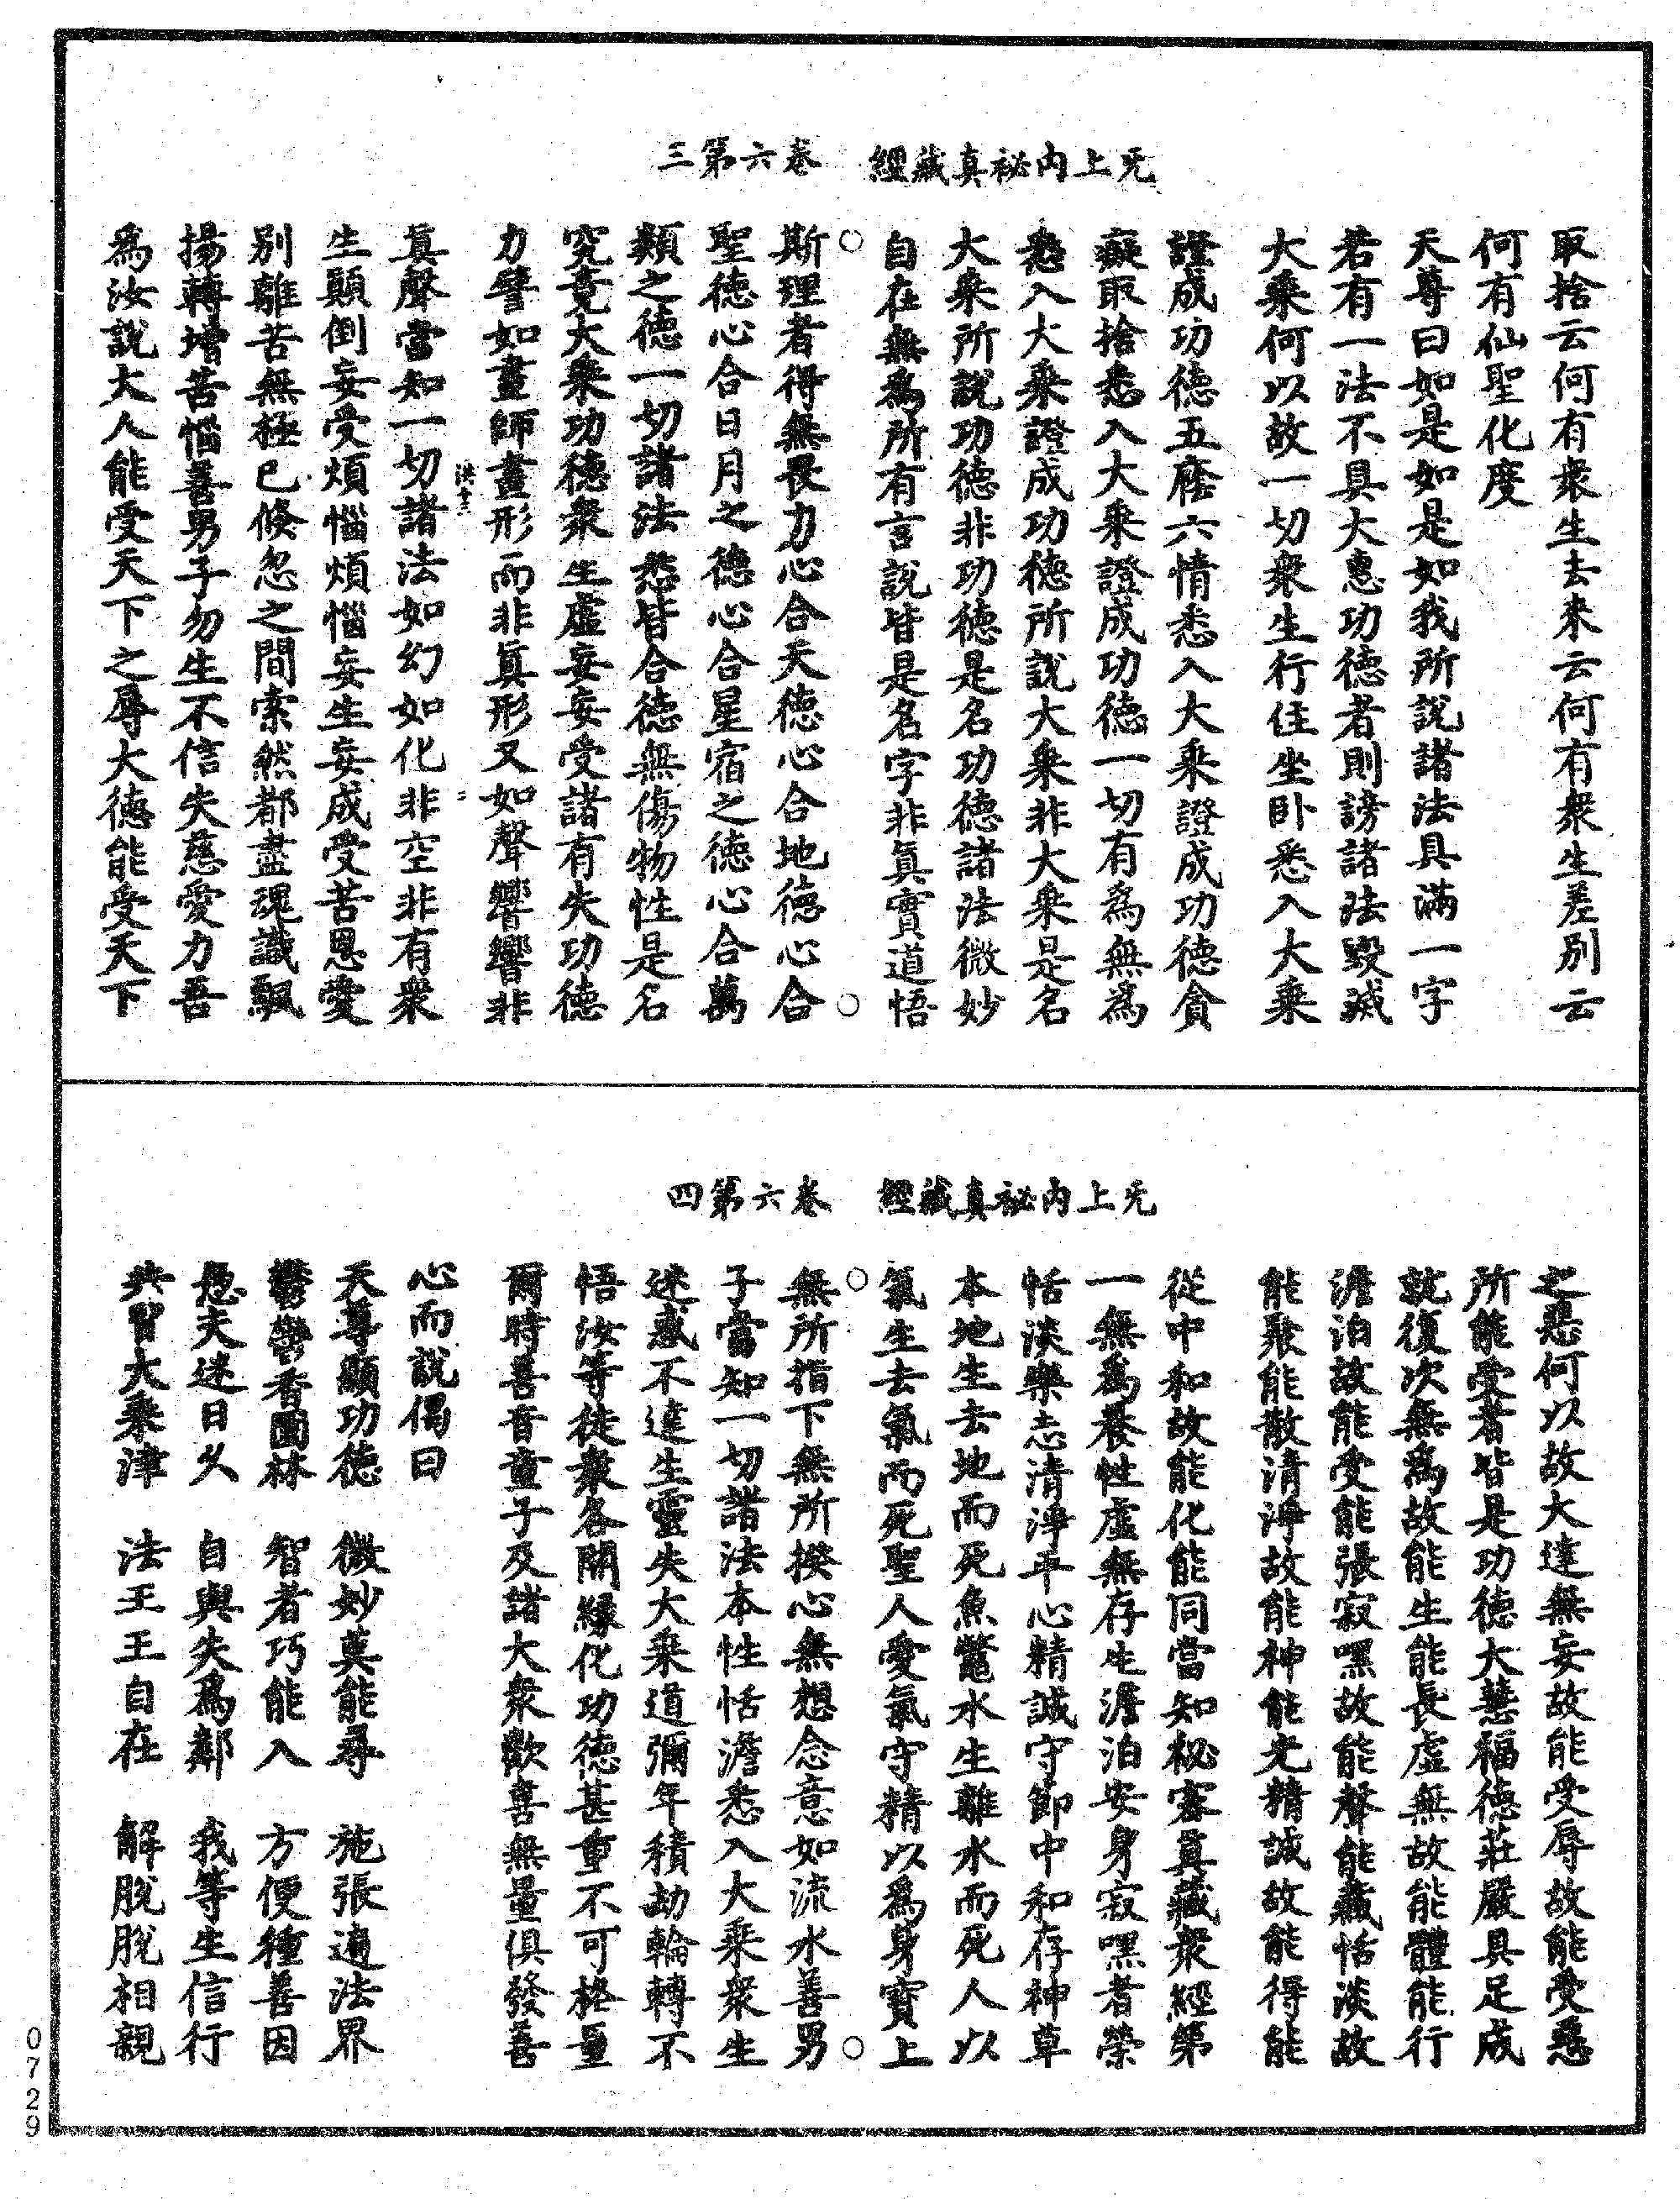 无上內祕真藏經　卷六第三
取捨云何有衆生去來云何有衆生差別云
何有仙聖化度
天尊曰如是如是如我所說諸法具滿一字
若有一法不具大惠功德者則謗諸法毀滅
大乘何以故一切衆生行住坐卧悉入大乘
證成功德五塵六情悉入大乘證成功德貪
癡取捨悉入大乘證成功德一切有爲無爲
悉入大乘證成功德所說大乘非大乘是名
大乘所說功德非功德是名功德諸法微妙
自在無爲所有言說皆是名字非真實道悟
斯理者得無畏力心合天德心合地德心合
聖德心合日月之德心合星宿之德心合萬
類之德一切諸法悉皆合德無傷物性是名
究竟大乘功德衆生虛妄妄受諸有失功德
力譬如畫師畫形而非真形又如聲響響非
真聲當知一切諸法如幻如化非空非有衆
生顛倒妄受煩惱煩惱妄生妄成受苦恩愛
別離苦無極已倏忽之間索然都盡魂識飄
揚轉增苦惱善男子勿生不信失慈愛力吾
爲汝說大人能受天下之辱大德能受天下
无上內祕真藏經　卷六第四
之惡何以故大達無妄故能受辱故能受惡
所能受者皆是功德大慧福德莊嚴具足成
就復次無爲故能生能長虛無故能體能行
澹泊故能受能張寂嘿故能聲能藏恬淡故
能聚能散清淨故能神能光精誠故能得能
從中和故能化能同當知秘密真藏衆經第
一無爲養性虛無存生澹泊安身寂嘿者榮
恬淡樂志清淨平心精誠守節中和存神草
本地生去地而死魚鼈水生離水而死人以
氣生去氣而死聖人愛氣守精以爲身寶上
無所指下無所揆心無想念意如流水善男
子當知一切諸法本性恬澹悉入大乘衆生
迷惑不達生靈失大乘道彌年積劫輪轉不
悟汝等徒衆各開緣化功德甚重不可格量
爾時善音童子及諸大衆歡喜無量俱發善
心而說偈曰
天尊顯功德　微妙莫能尋　施張遍法界
鬱鬱香園林　智者巧能入　方便種善因
愚夫迷日久　自與失爲鄰　我等生信行
共習大乘津　法王王自在　解脫脫相親
0729